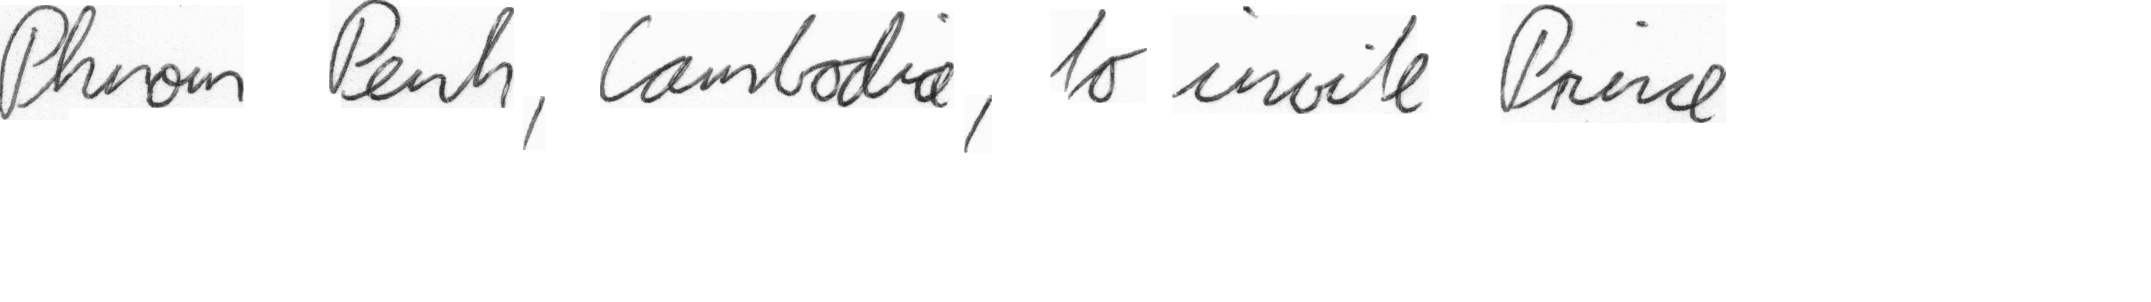 Phnom Penh, Cambodia, to invite Prince